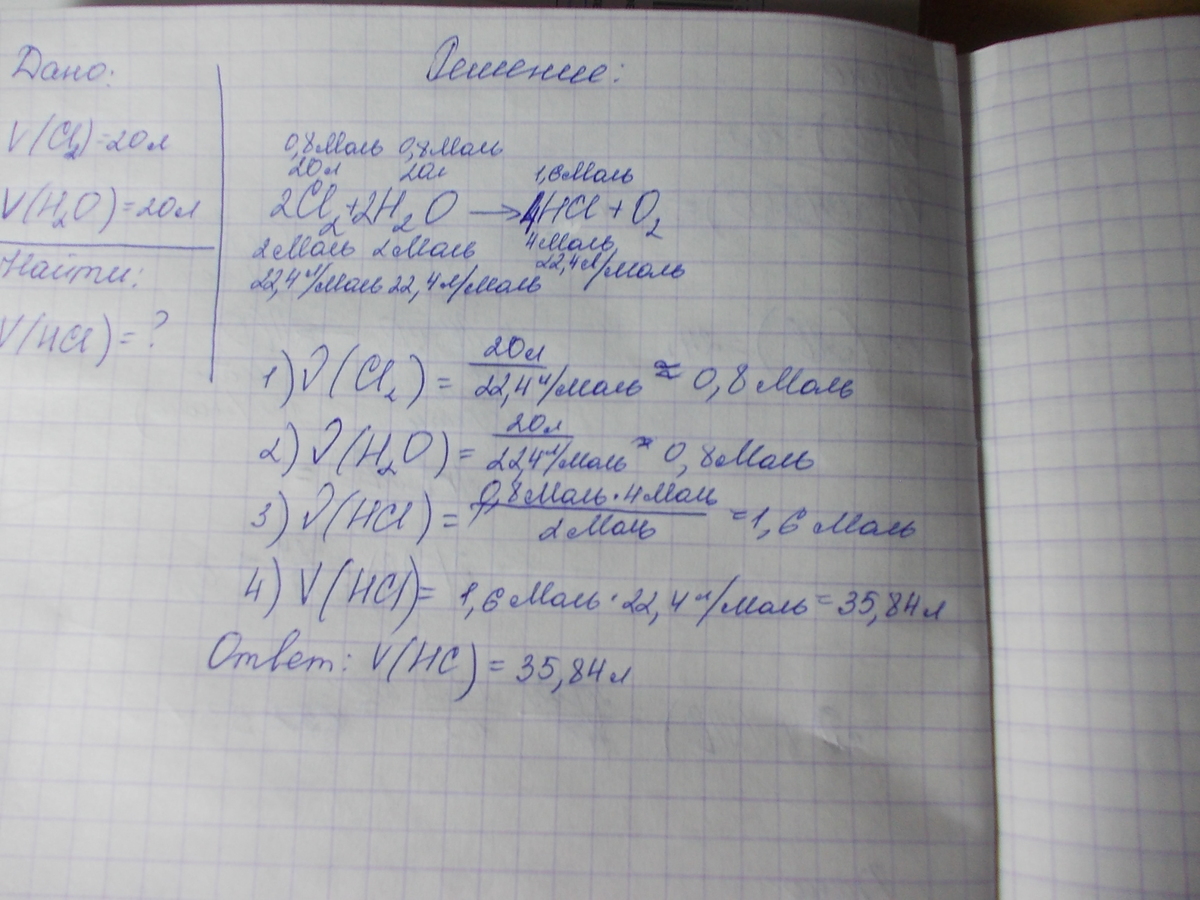 Дано:
V(Cl₂)=20л
V(H₂O)=20л
Найти:
V(HCl)=?
Решение:
0,8Моль 0,8Моль
20л 20л 1,6Моль
2Cl₂+2H₂O → 4HCl+O₂
2Моль 2Моль 4Моль
22,4л/моль 22,4л/моль 22,4л/моль
1) ν(Cl₂) = 20л / 22,4л/моль ≈ 0,8 Моль
2) ν(H₂O) = 20л / 22,4л/моль ≈ 0,8Моль
3) ν(HCl) = 0,8Моль·4Моль / 2Моль = 1,6 Моль
4) V(HCl)= 1,6 Моль·22,4л/моль=35,84л
Ответ: V(HC)=35,84л